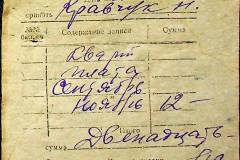 принять Кравчук Н.
№№ Содержание записи Сумма
Кварт
плата
Сентябрь
Ноябрь 12-
Итого
сумма Двенадцать